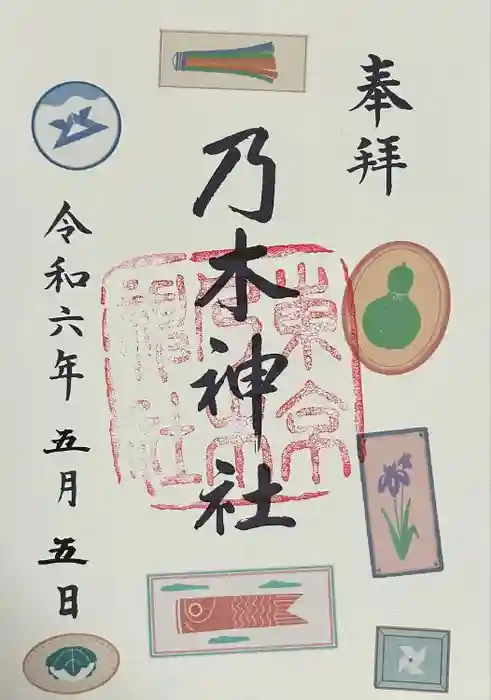 奉拝
乃木神社
東京乃木神社
令和六年五月五日